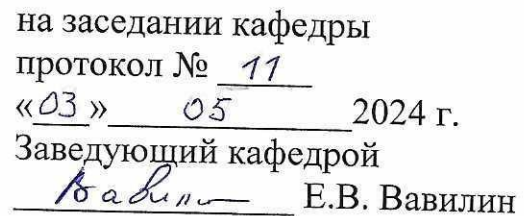 на заседании кафедры
протокол № 11
«03» 05 2024 г.
Заведующий кафедрой
Вавилин Е.В. Вавилин